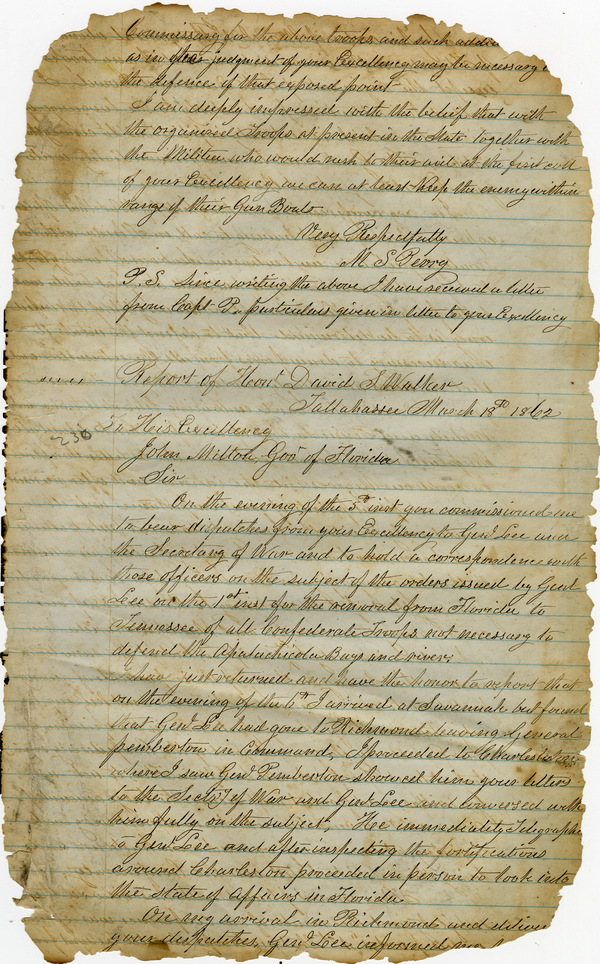 Commissary for the above troops and such
as in the judgment of your Excellency may be necessary
the defence of that exposed point
I am deeply impressed with the belief that with
the organized troops at present in the State together with
the Militia who would rush to their aid at the first call
of your Excellency we can at least keep the enemy within
range of their Gun Boats
Very Respectfully
M S Perry
P. S. Since writing the above I have received a letter
from Capt P particulars given in letter to your Excellency
Report of Honl David S Walker
Tallahassee March 18th 1862
230
To His Excellency
John Milton Govr of Florida
Sir
On the evening of the 5th inst you commissioned me
to bear dispatches from your Excellency to Genl Lee and
the Secretary of War and to hold a correspondence with
those officers on the subject of the orders issued by Genl
Lee on the 1st inst for the removal from Florida to
Tennessee of all Confederate Troops not necessary to
defend the Apalachicola Bays and river.
I have just returned and have the honor to report that
on the evening of the 6th I arrived at Savannah but found
that Genl Lee had gone to Richmond leaving General
Pemberton in Command, I proceeded to Charleston
where I saw Genl Pemberton showed him your letters
to the Secty of War and Genl Lee and conversed with
him fully on the subject, Hee immediatily Telegraphed
to Genl Lee and after inspecting the fortifications
around Charleston proceeded in person to look into
the state of affairs in Florida
On my arrival in Richmond and
your dispatches, Genl Lee informed me